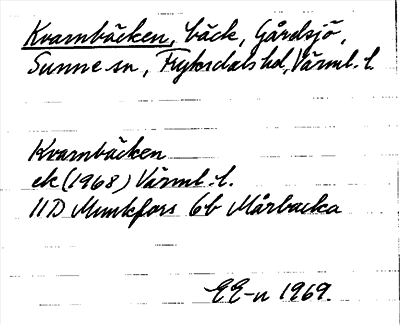 Kvarnbäcken, bäck, Gårdsjö,
Sunne sn, Fryksdals hd, Värml. l.
Kvarnbäcken
ek (1968) Värml. l.
11D Munkfors 6b Mårbacka
EE-n 1969.